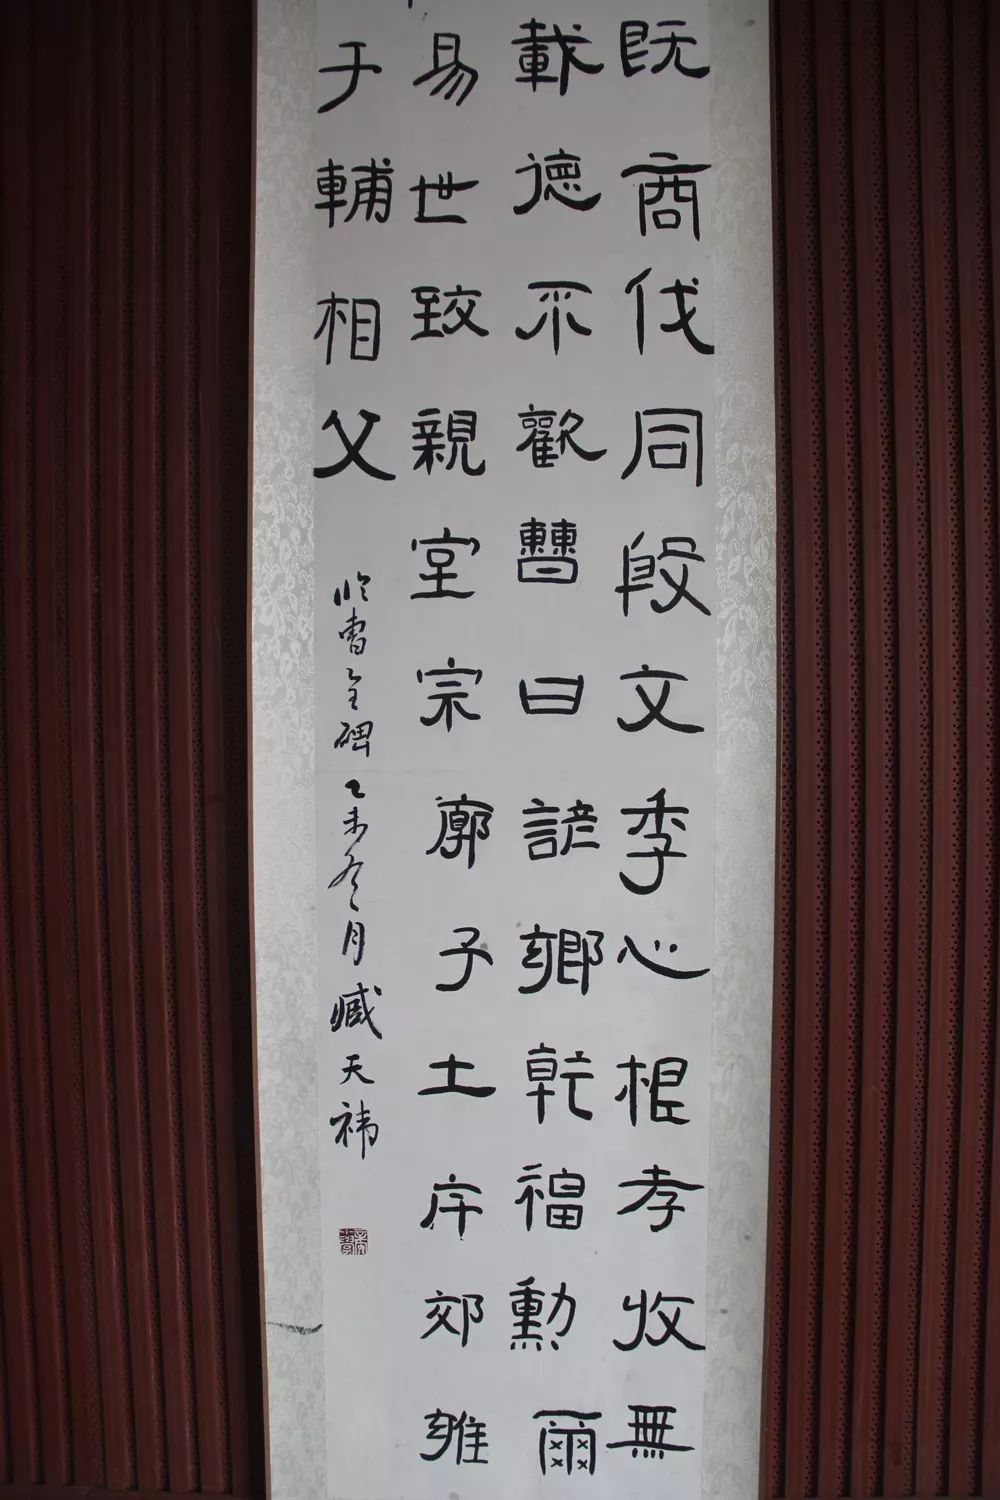 既商伐同殷文季心根孝收無
載德不歡曹曰諺鄉乾福勳爾
易世致親室宗廓子土斥郊雍
于輔相父
临曹全碑乙未冬月臧天祎